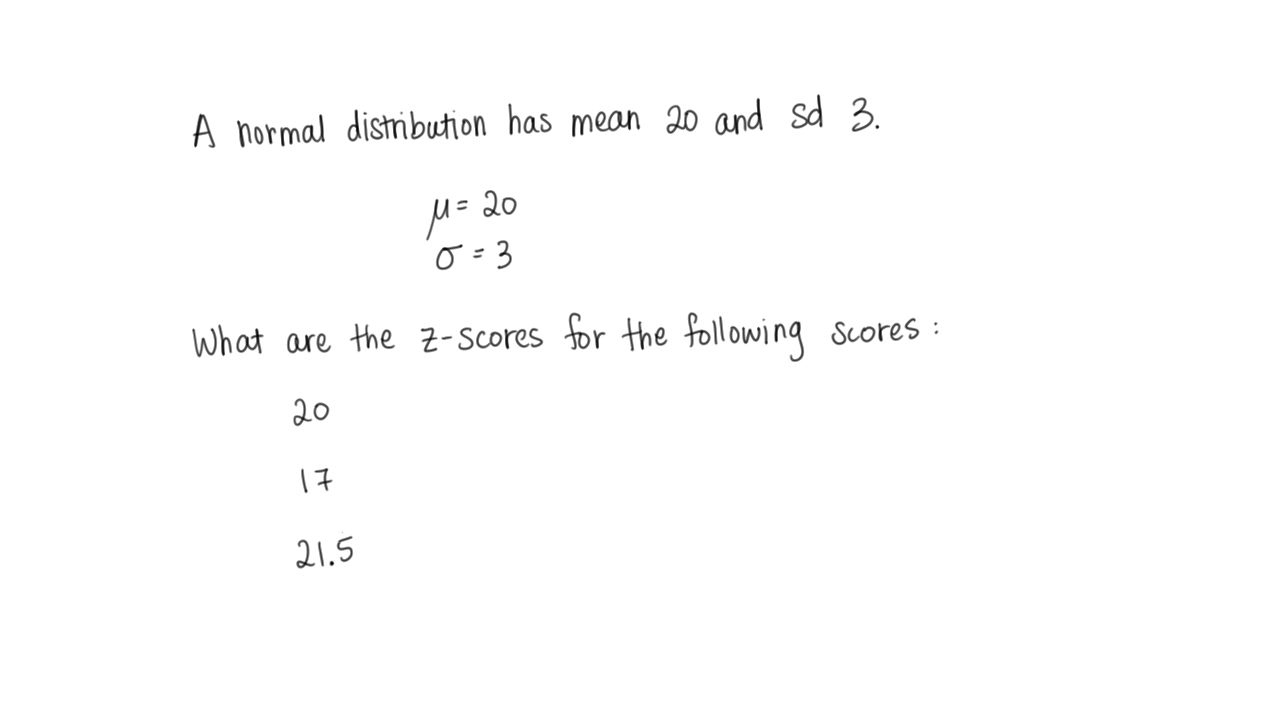 A normal distribution has mean 20 and sd 3.
μ = 20
σ = 3
What are the z-scores for the following scores:
20
17
21.5